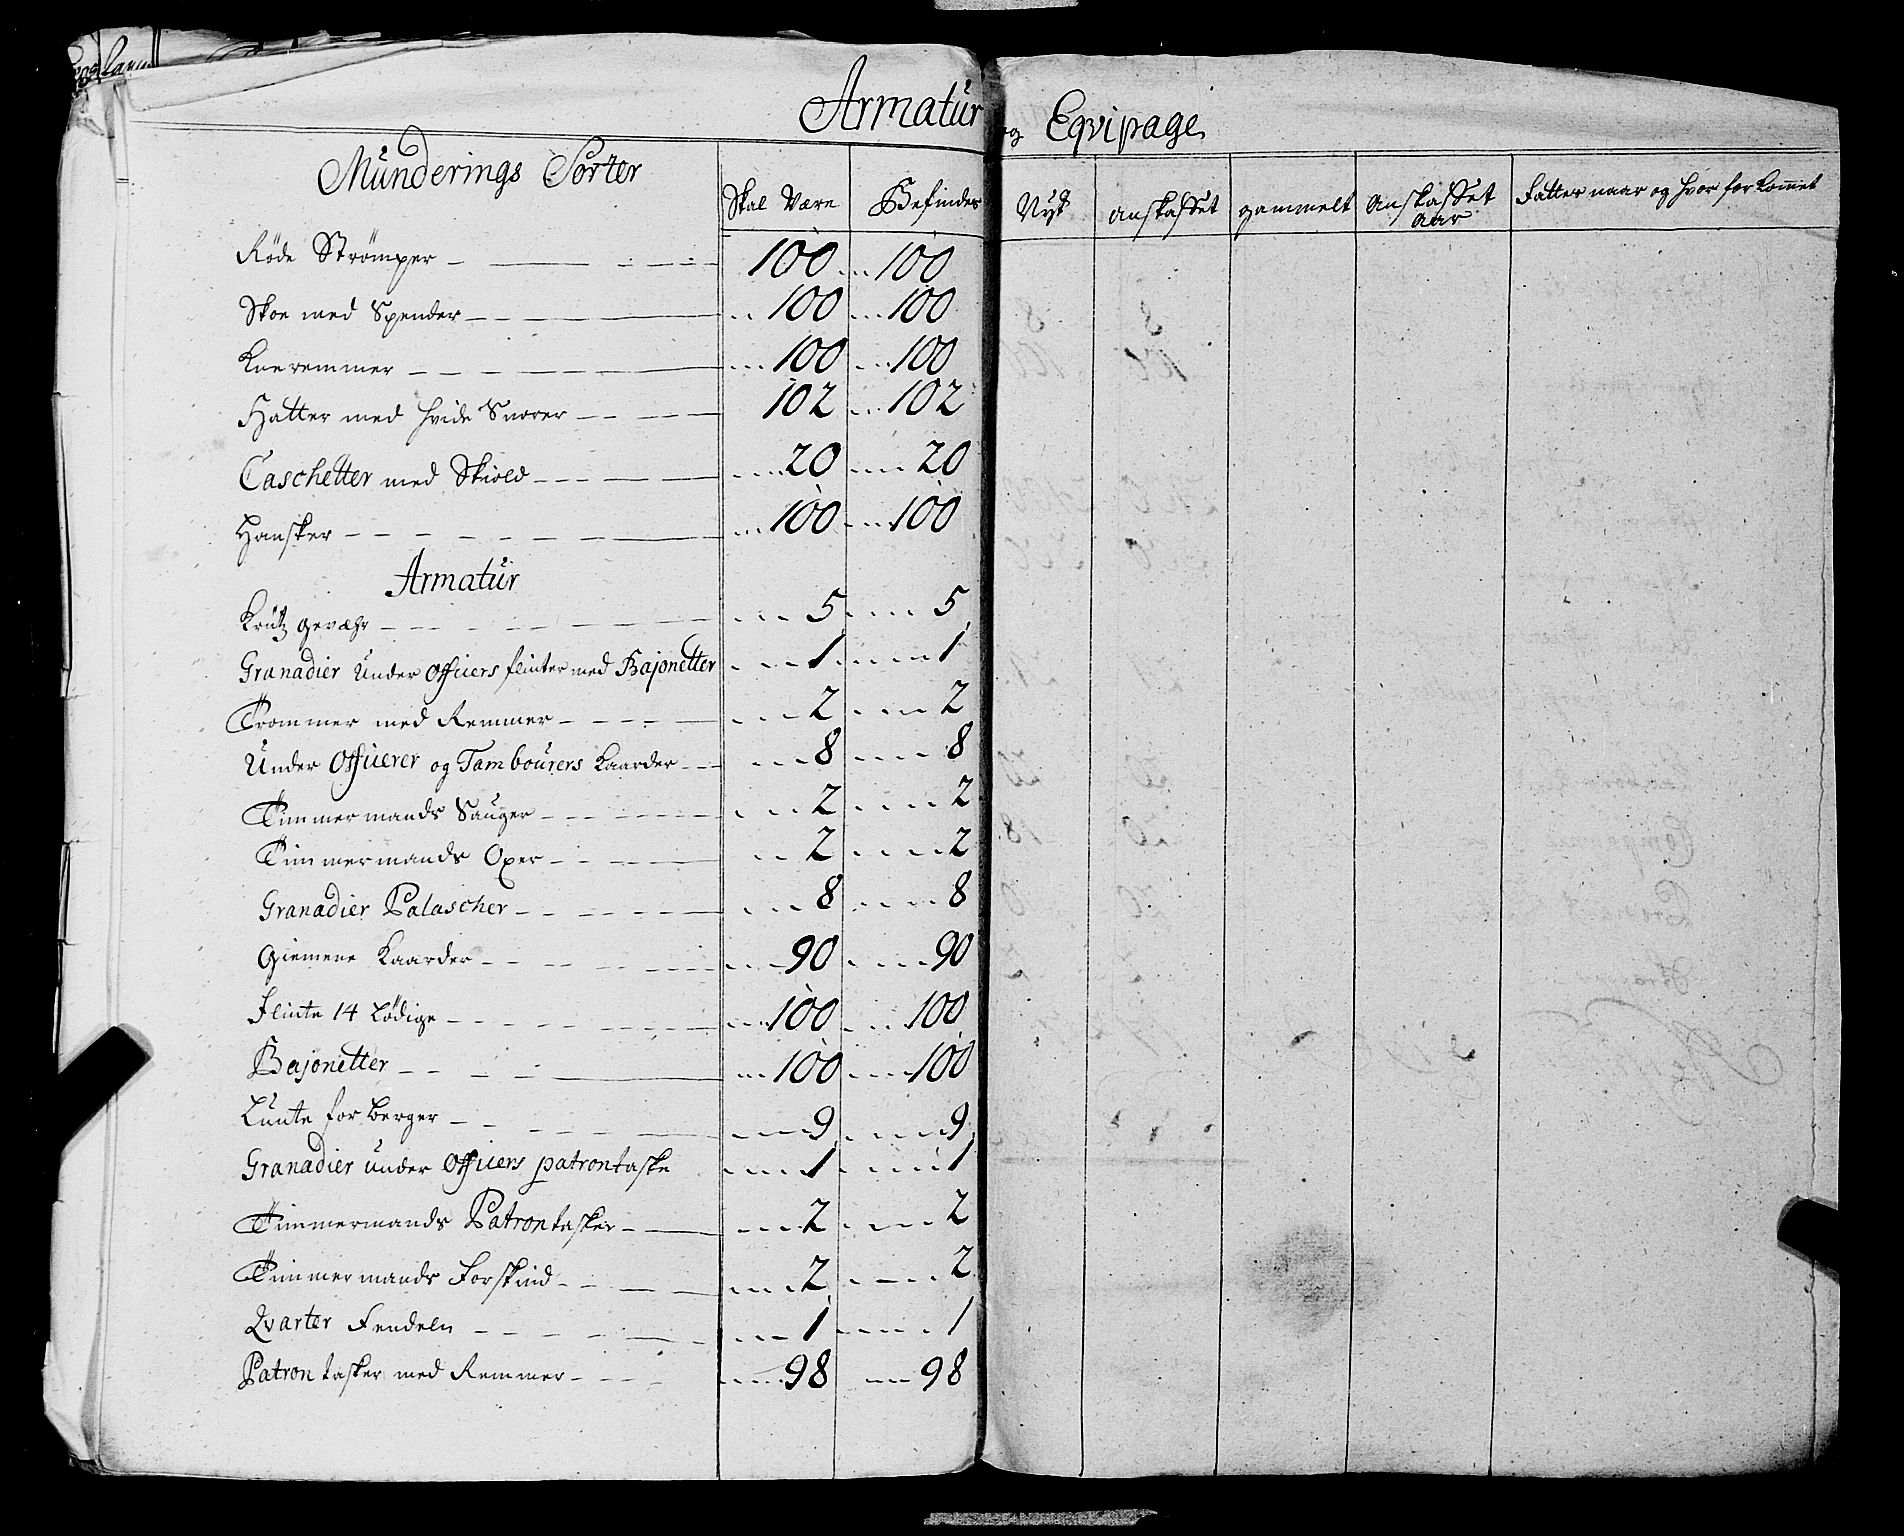 Armatür og Eqvipage
Münderings Sorter
Skal Være
Befindes
Nyt
anskaffet
gammelt
Anskaffet Aar
Fatter naar og hvor for kommet
Røde Strömper 100 100
Skoe med Spender 100 100
Knæremmer 100 100
Hatter med hvide Snorer 102 102
Caschetter med Skiold 20 20
Hansker 100 100
Armatür
Krütz gevæhr 5 5
Granadier Under Officers flinter med Bajonetter 1 1
Trommer med Remmer 2 2
Under Officerer og Tambourers Kaarder 8 8
Timmermands Sauger 2 2
Timmermands Oxer 2 2
Granadier Palascher 8 8
Giemene Kaarder 90 90
Flinte 14 Lödige 100 100
Bajonetter 100 100
Lunte for berger 9 9
Granadier under Officers patrontaske 1 1
Timmermands Patrontasker 2 2
Timmermands Forskind 2 2
Qvarter Fendeln 1 1
Patron tasker med Remmer 98 98